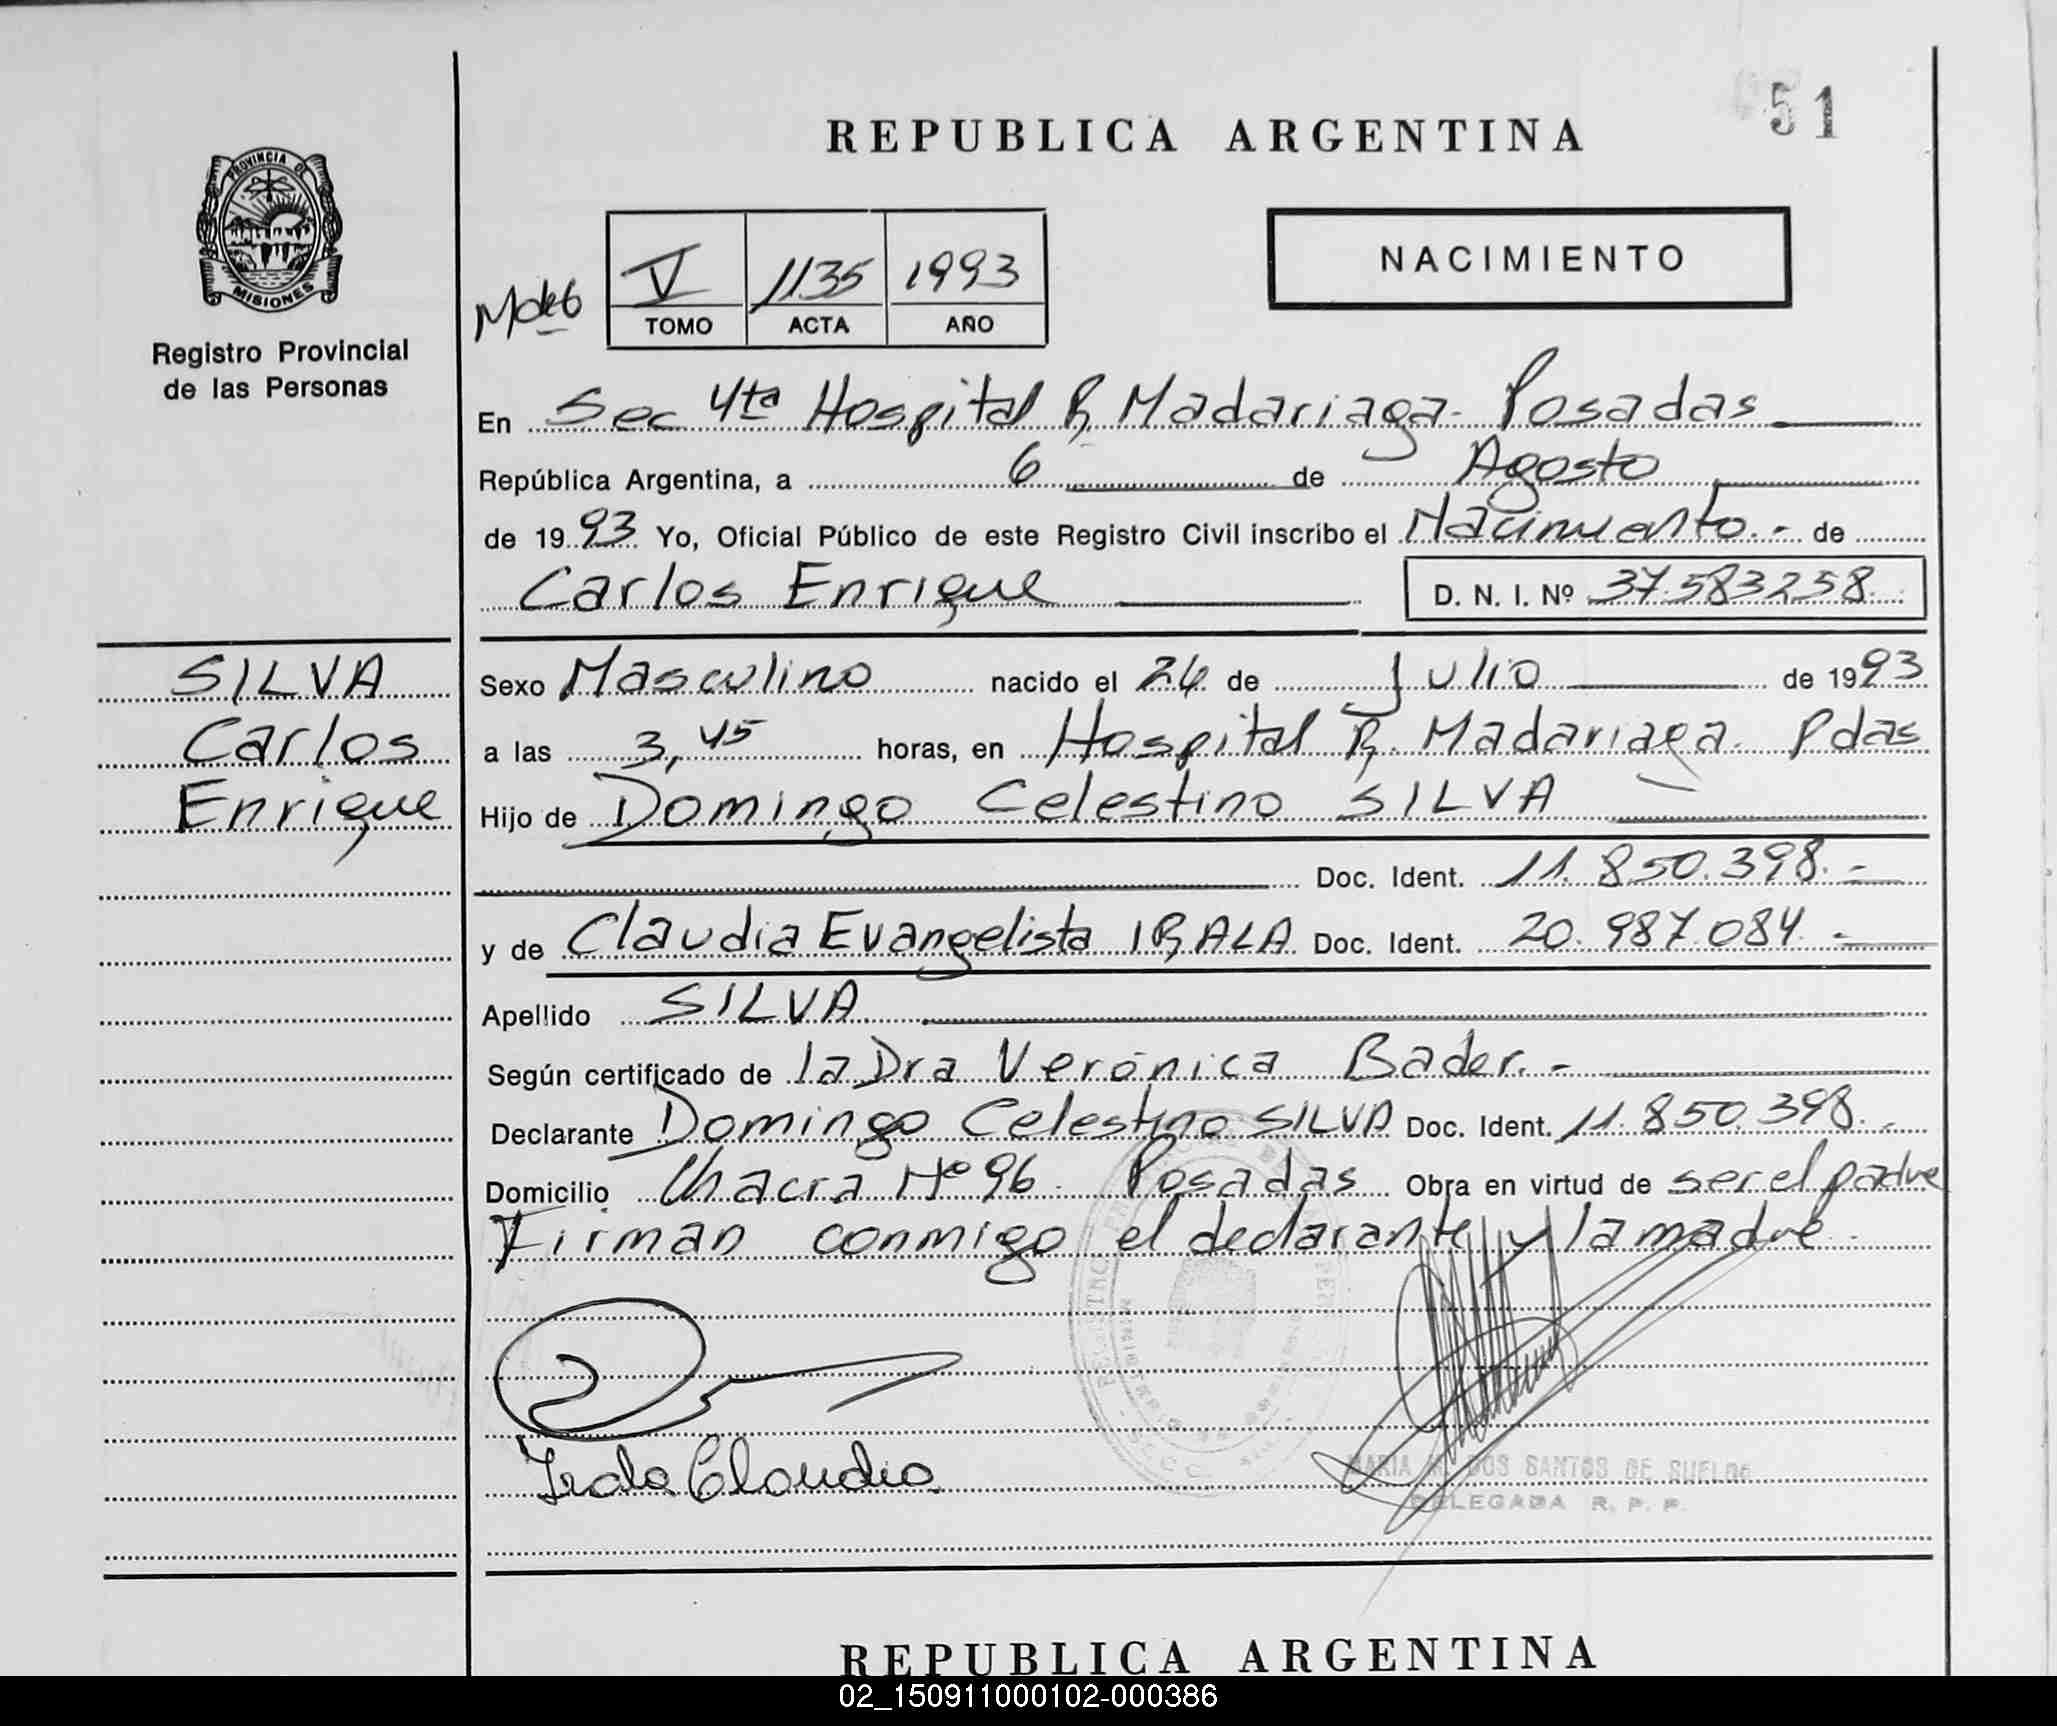 51
REPUBLICA ARGENTINA
PROVINCIA DE
MISIONES
Registro Provincial
de las Personas
NACIMIENTO
V 1135 1993
TOMO ACTA AÑO
En Sec 4ta Hospital R. Madariaga - Posadas
República Argentina, a 6 de Agosto
de 1993 Yo, Oficial Público de este Registro Civil inscribo el Nacimiento.- de
Carlos Enrique D. N. I. Nº 37.583258.
SILVA
Carlos
Enrique
Sexo Masculino nacido el 24 de Julio de 1993
a las 3,45 horas, en Hospital R. Madariaga. Pdas
Hijo de Domingo Celestino SILVA
Doc. Ident. 11.850.398.-
y de Claudia Evangelista IRALA Doc. Ident. 20.987.084.-
Apellido SILVA
Según certificado de la Dra Verónica Bader.-
Declarante Domingo Celestino SILVA Doc. Ident. 11.850.398.
Domicilio Chacra Nº 96. Posadas Obra en virtud de ser el padre
Firman conmigo el declarante y la madre.
Irala Claudia
DOS SANTOS DE
DELEGADA R. P. P.
REPUBLICA ARGENTINA
02_150911000102-000386